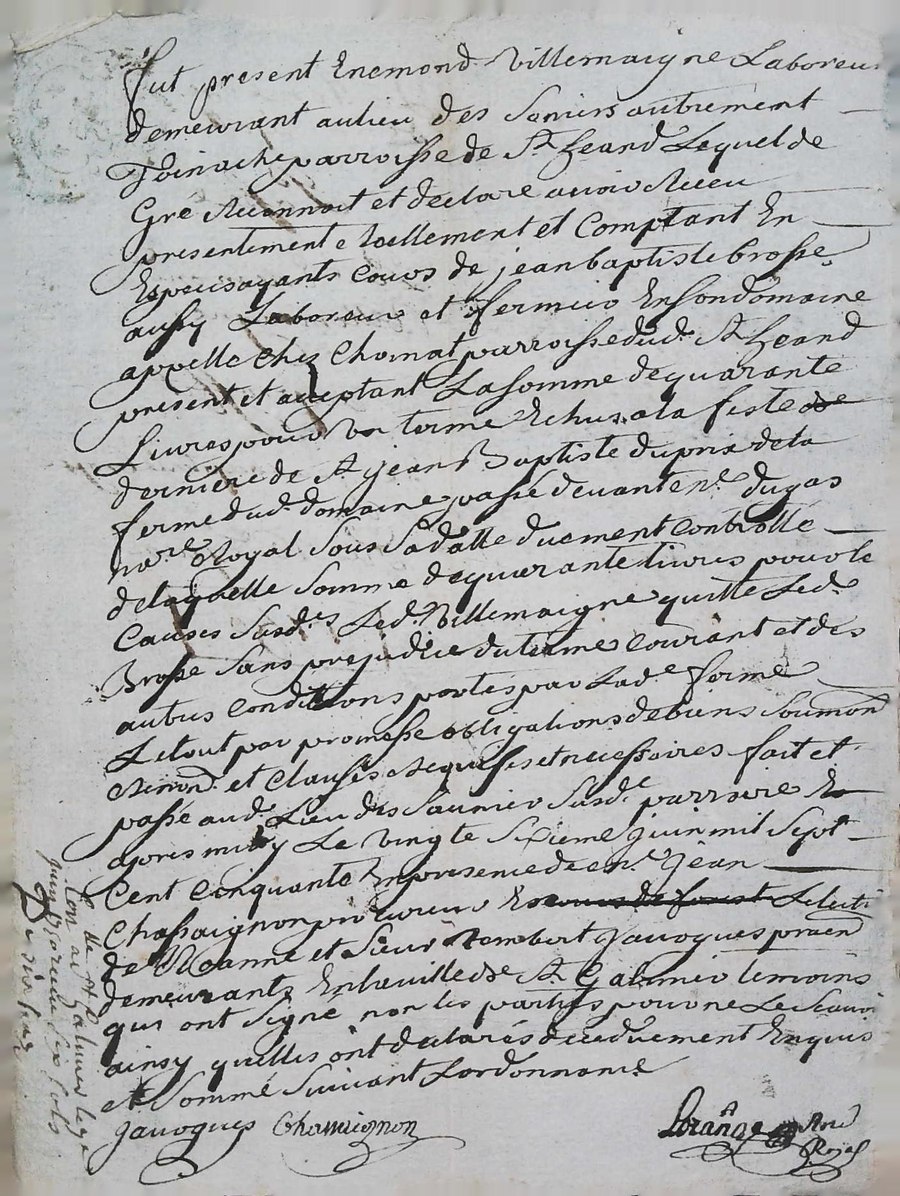 fut present Enemond Villemaigne Laboreur
demeurant au lieu des Soniers autrement
parroisse de St heand Lequel de
Gré Reconnoit et declare avoir Receu
presentement e Reellement et Comptant En
Especes ayants Cours de jean baptiste brosse
aussy Laboreur et fermier En son domaine
appelle Chez Chomat parroisse dud. St heand
present et aceptant La somme de quarante
Livres pour un terme Echus a la feste
derniere de St jean Baptiste du prix de la
ferme dud. domaine passé devant me. dugas
nore. Royal sous sa datte duement Controllé
de laquelle somme de quarante livres pour le
Causes susd.es Led. Villemaigne quitte Led.
Brosse sans prejudice du terme Courant et des
autres Conditions portes par Lade ferme
Le tout par promesse obligations de biens soumon
Renond. et Clauses Requises et necessaires fait et
passé aud. Lieu des Saunier susd.e parroisse
apres midy Le Vingt Sixieme Juin mil Sept
Cent Cinquante En presence de me. Jean
Chassaignon procureur En cours de forest Election
de Roanne et Sieur Rembert Javogues praen
demeurants En la ville de St Galmier temoins
qui ont Signé non les parties pour ne Le Scavoir
ainsy quelles ont declarés de ce duement Enquis
et Sommé Suivant Lordonnance
Javogues Chassaignon
Lorange Nore
Royal